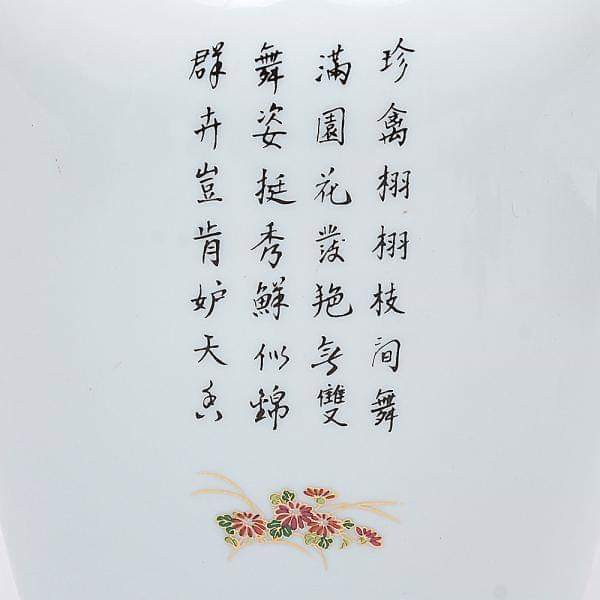 珍禽栩栩枝间舞
滿園花發艳無雙
舞姿挺秀鮮似錦
群卉豈肯妒天香